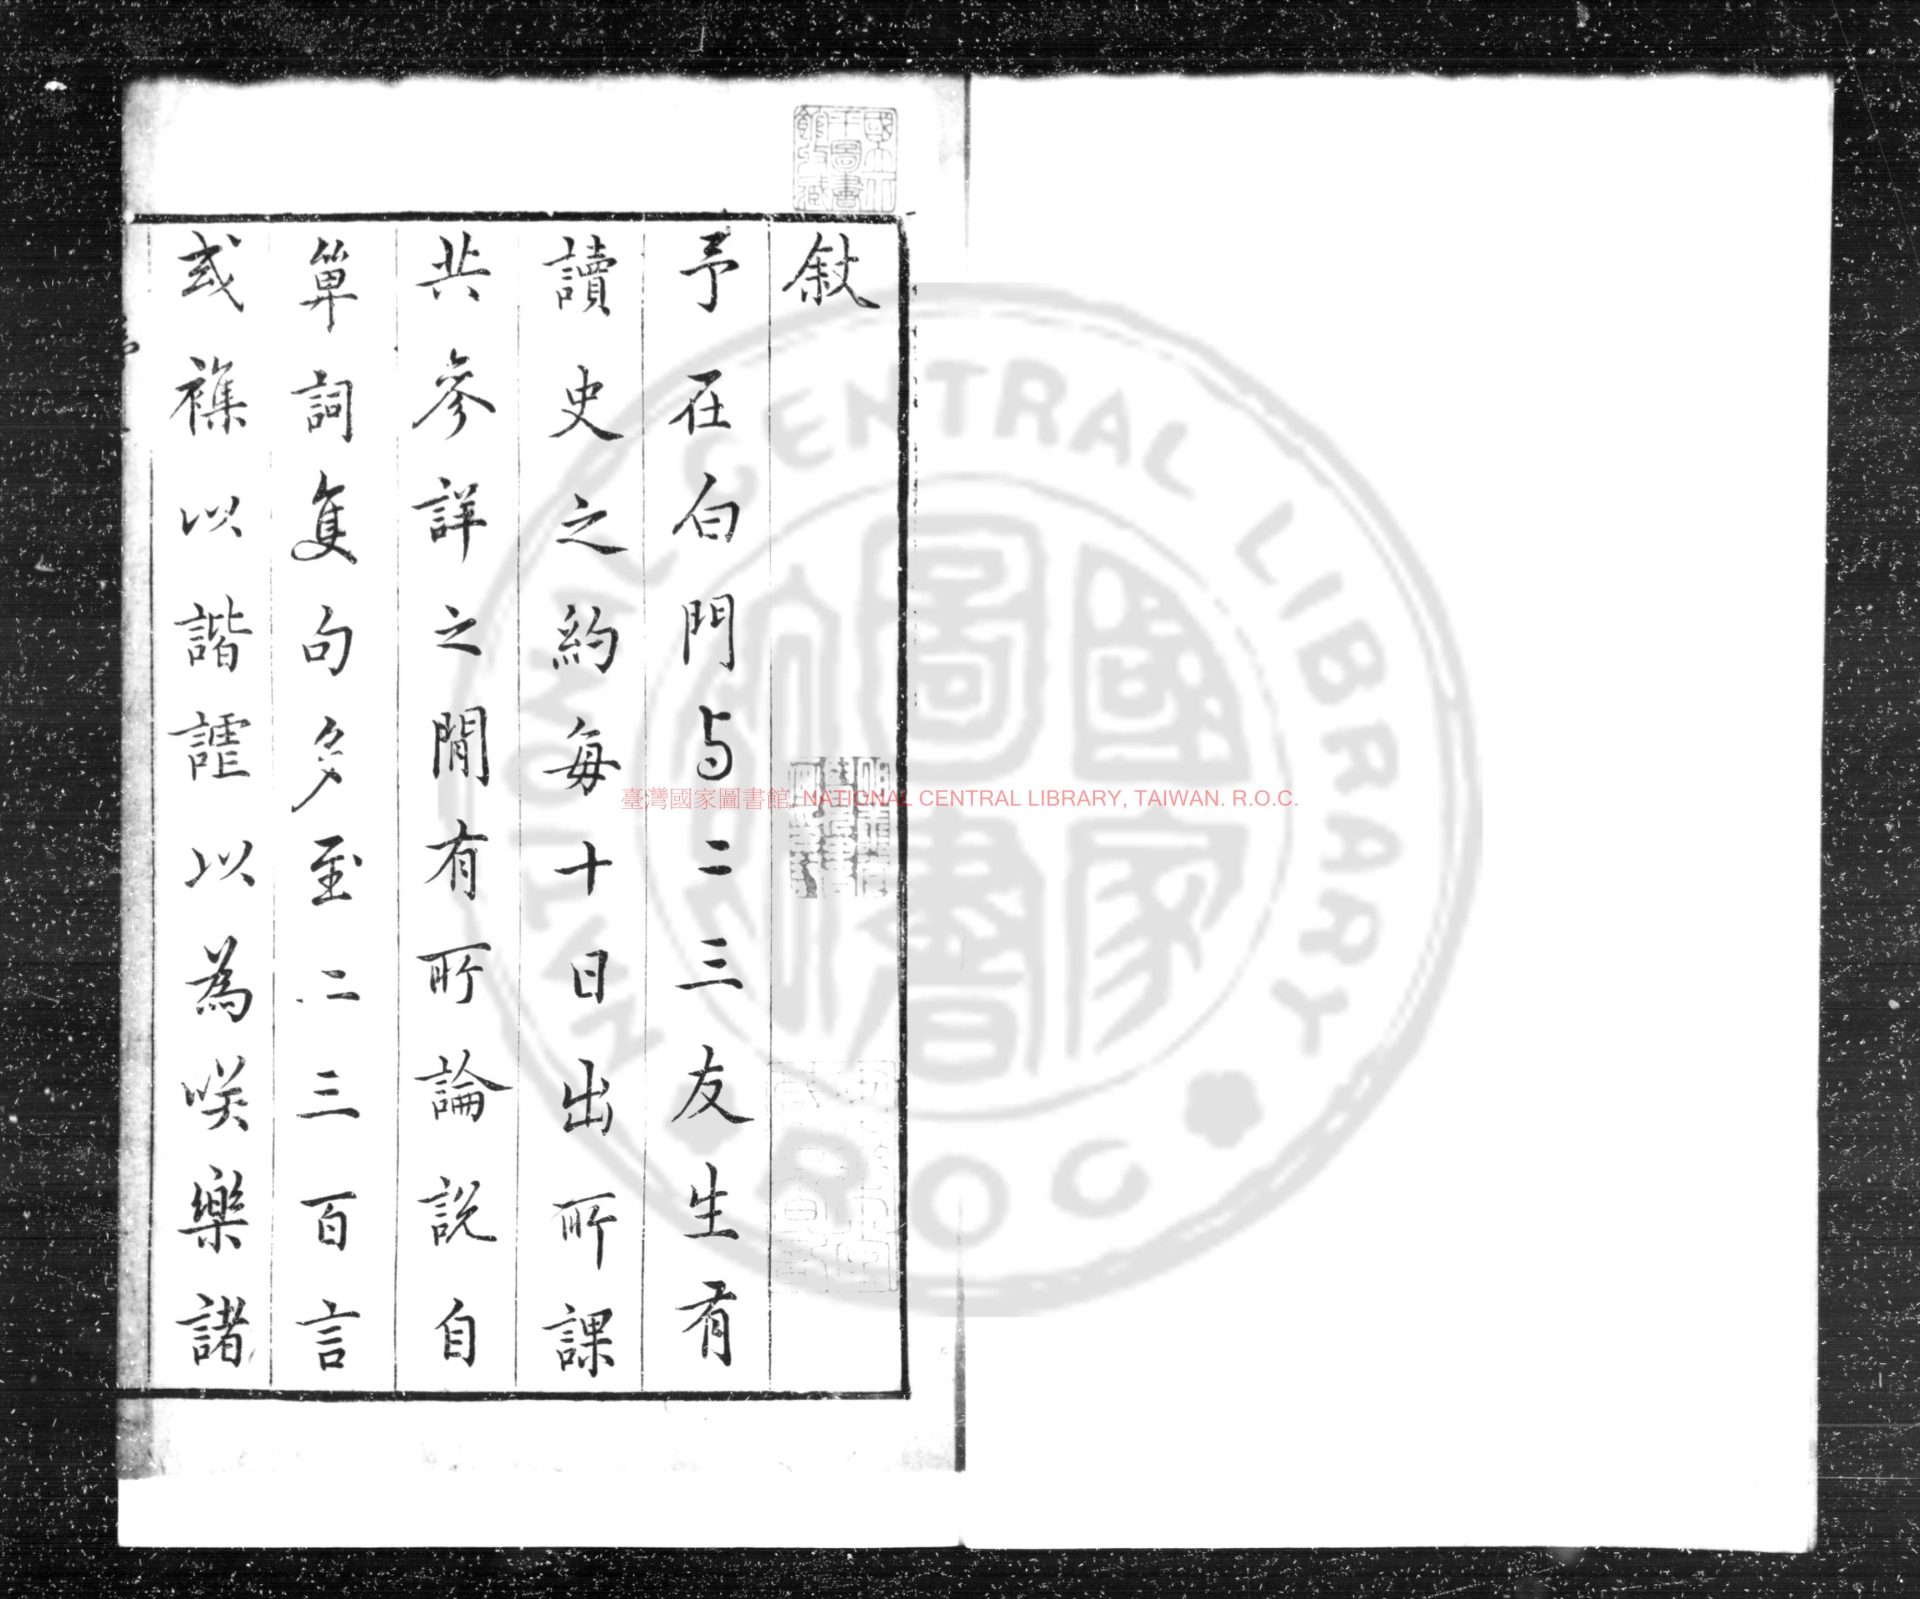 敘
予在白門与二三友生有
讀史之約每十日出所課
共參詳之閒有所論說自
單詞隻句多至二三百言
或襍以諧謔以為咲樂諸
國立中
央圖書
館收藏
臺灣國家圖書館, NATIONAL CENTRAL LIBRARY, TAIWAN. R.O.C.
NATIONAL CENTRAL LIBRARY
R O C
國家圖書